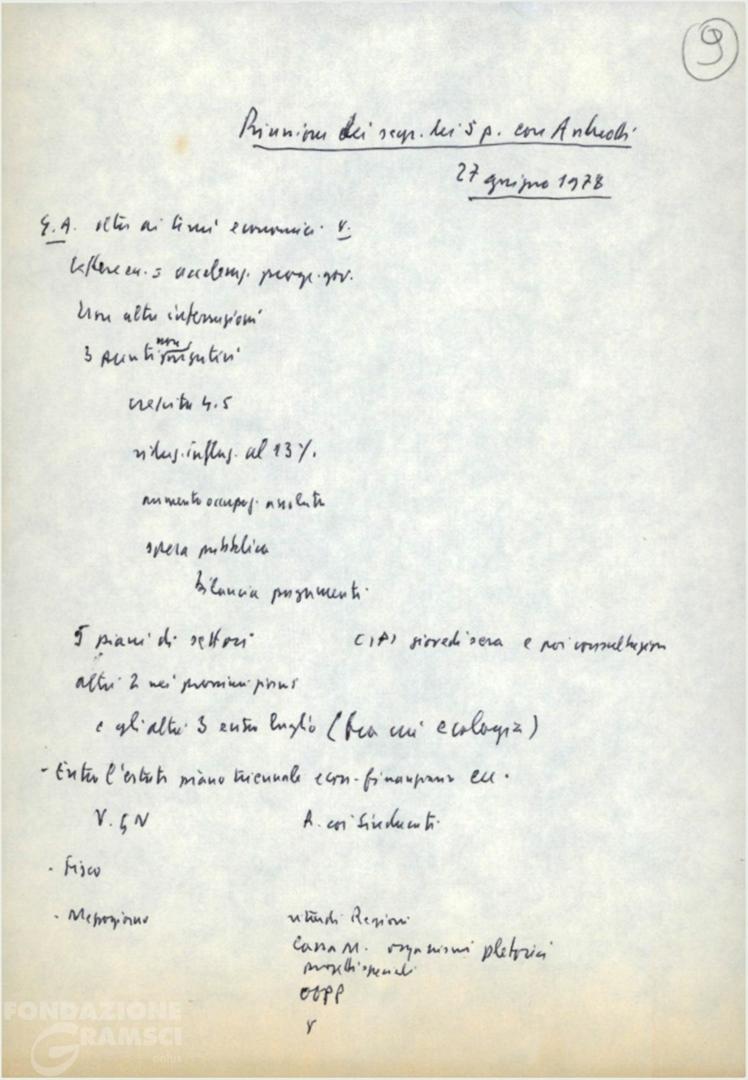 9
Riunione dei segr. dei 5 p. con Andreotti
27 giugno 1978
G.A. oltre ai temi economici. V.
progr. gov.
altre interruzioni
3 punti non
crescita 4.5
riduz. inflaz. al 13%.
aumento occupaz. assoluta
spesa pubblica
bilancia pagamenti
5 piani di settori
CIPI giovedì sera e poi consultazioni
altri 2 nei prossimi giorni
e gli altri 3 entro luglio (tra cui ecologia)
- Entro l'estate piano triennale econ-finanziario
V. GN
R. coi Sindacati
- Fisco
- Mezzogiorno
ritardi Regioni
Cassa M. organismi pletorici
progetti speciali
OOPP
V
FONDAZIONE
GRAMSCI
onlus